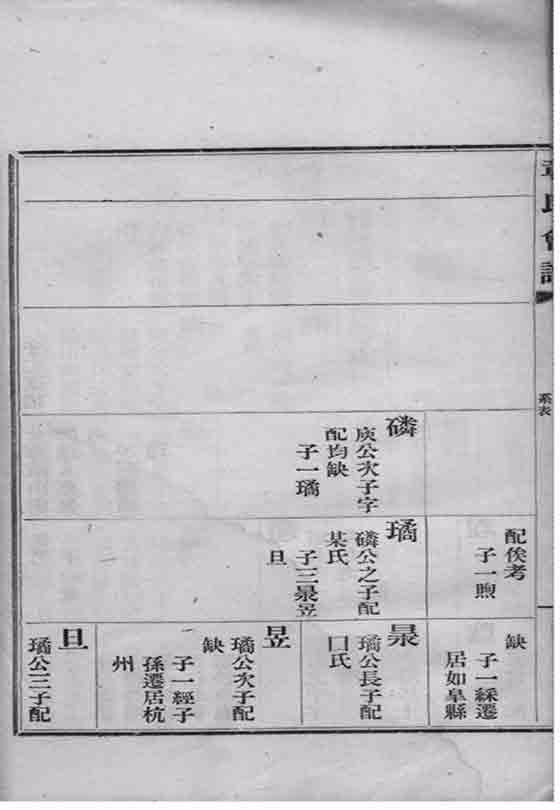 章氏會譜
系表
磷
庾公次子字
配均缺
子一璚
配俟考
子一煦
璚
磷公之子配
某氏
子三昦昱
旦
缺
子一綵遷
居如臯縣
昦
璚公長子配
囗氏
昱
璚公次子配
缺
子一經子
孫遷居杭
州
旦
璚公三子配